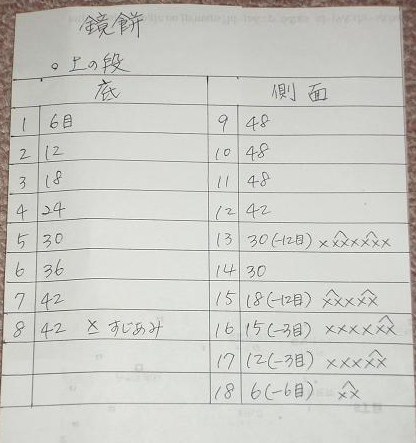 鏡餅
○上の段
底 側面
1 6目 9 48
2 12 10 48
3 18 11 48
4 24 12 42
5 30 13 30(-12目) x x̂x̂xx̂x̂x
6 36 14 30
7 42 15 18(-12目)
8 42 x すじあみ 16 15(-3目)
17 12(-3目)
18 6(-6目)